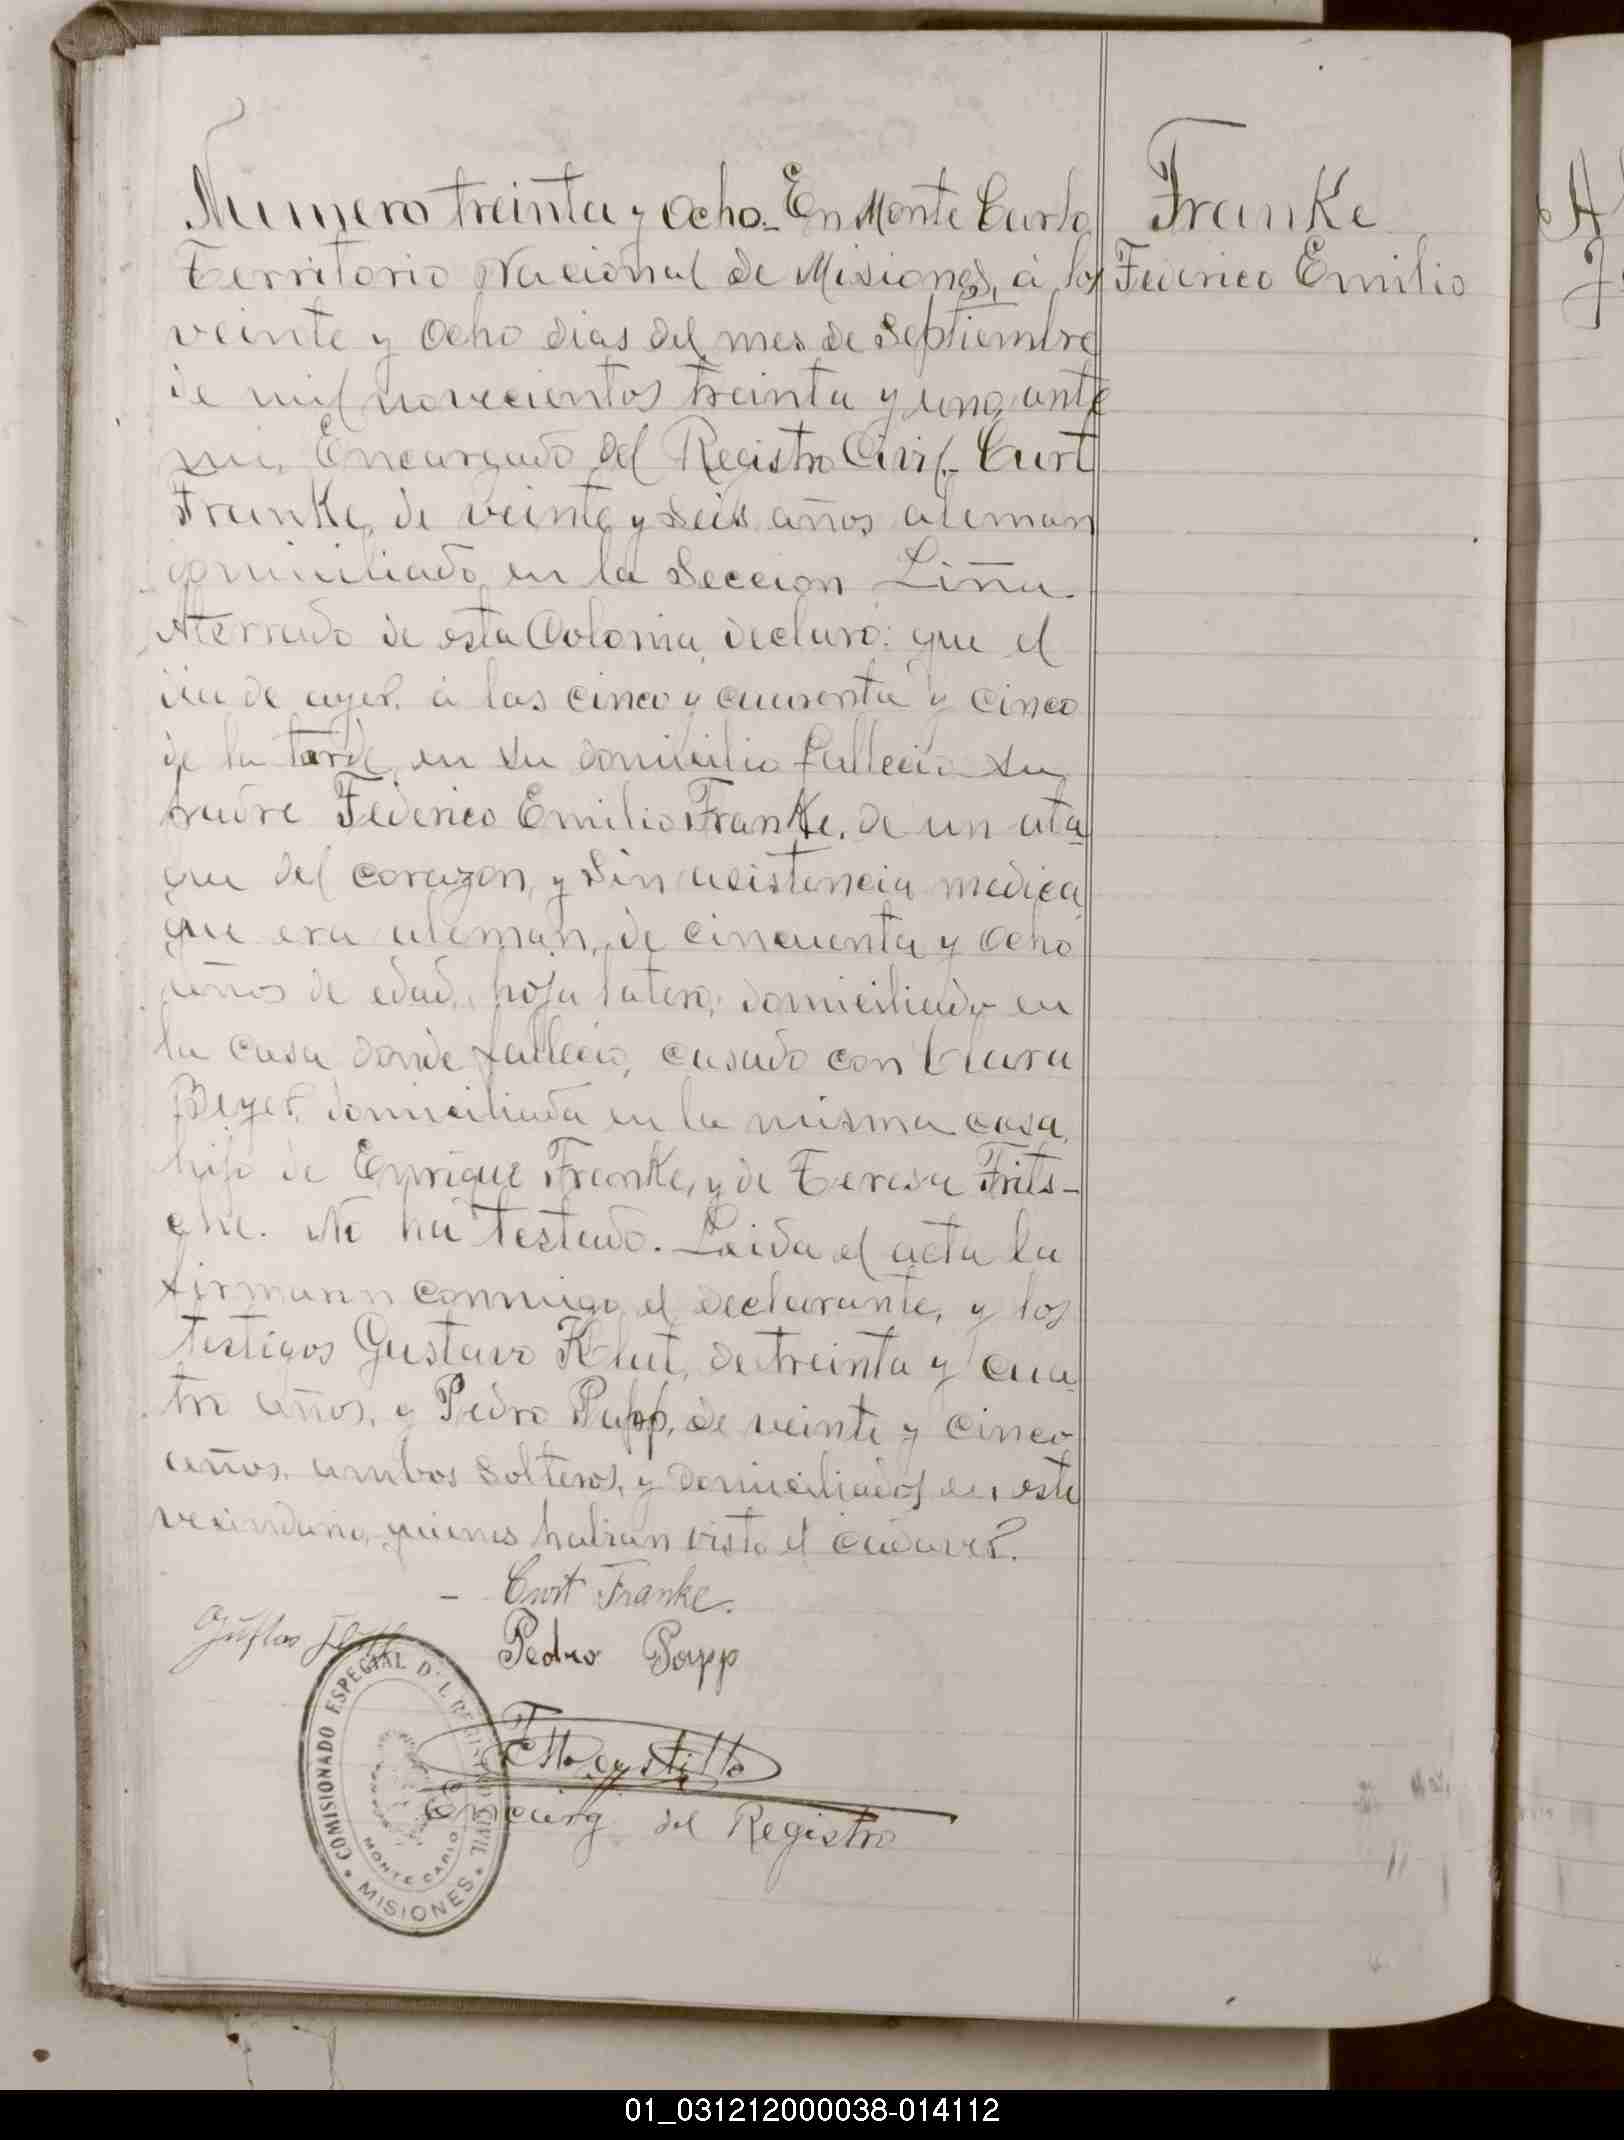 Numero treinta y ocho.- En Monte Carlo
Territorio Nacional de Misiones, á los
veinte y ocho dias del mes de Septiembre
de mil novecientos treinta y uno, ante
mi, Encargado del Registro Civil.- Curt
Franke, de veinte y seis años aleman
domiciliado en la Seccion Liña
Aterrado de esta Colonia, declaró: que el
dia de ayer, á las cinco y cuarenta y cinco
de la tarde, en su domicilio falleció su
padre Federico Emilio Franke, de un ata-
que del corazon, y sin asistencia medica,
que era aleman, de cincuenta y ocho
años de edad, hoja latero, domiciliado en
la casa donde falleció, casado con Clara
Beyer, domiciliada en la misma casa,
hijo de Enrique Franke, y de Teresa Frits-
che. No há testado. Leida el acta la
firmann conmigo, el declarante, y los
testigos Gustavo Klut, de treinta y cua-
tro años, y Pedro Papp, de veinte y cinco
años, ambos solteros, y domiciliados en este
vecindario, quienes habian visto el cadaver.
Franke
Federico Emilio
- Curt Franke.
Gustav
Pedro Papp
Encarg del Registro
COMISIONADO ESPECIAL DEL REGISTRO CIVIL
MONTE CARLO
MISIONES
01_031212000038-014112